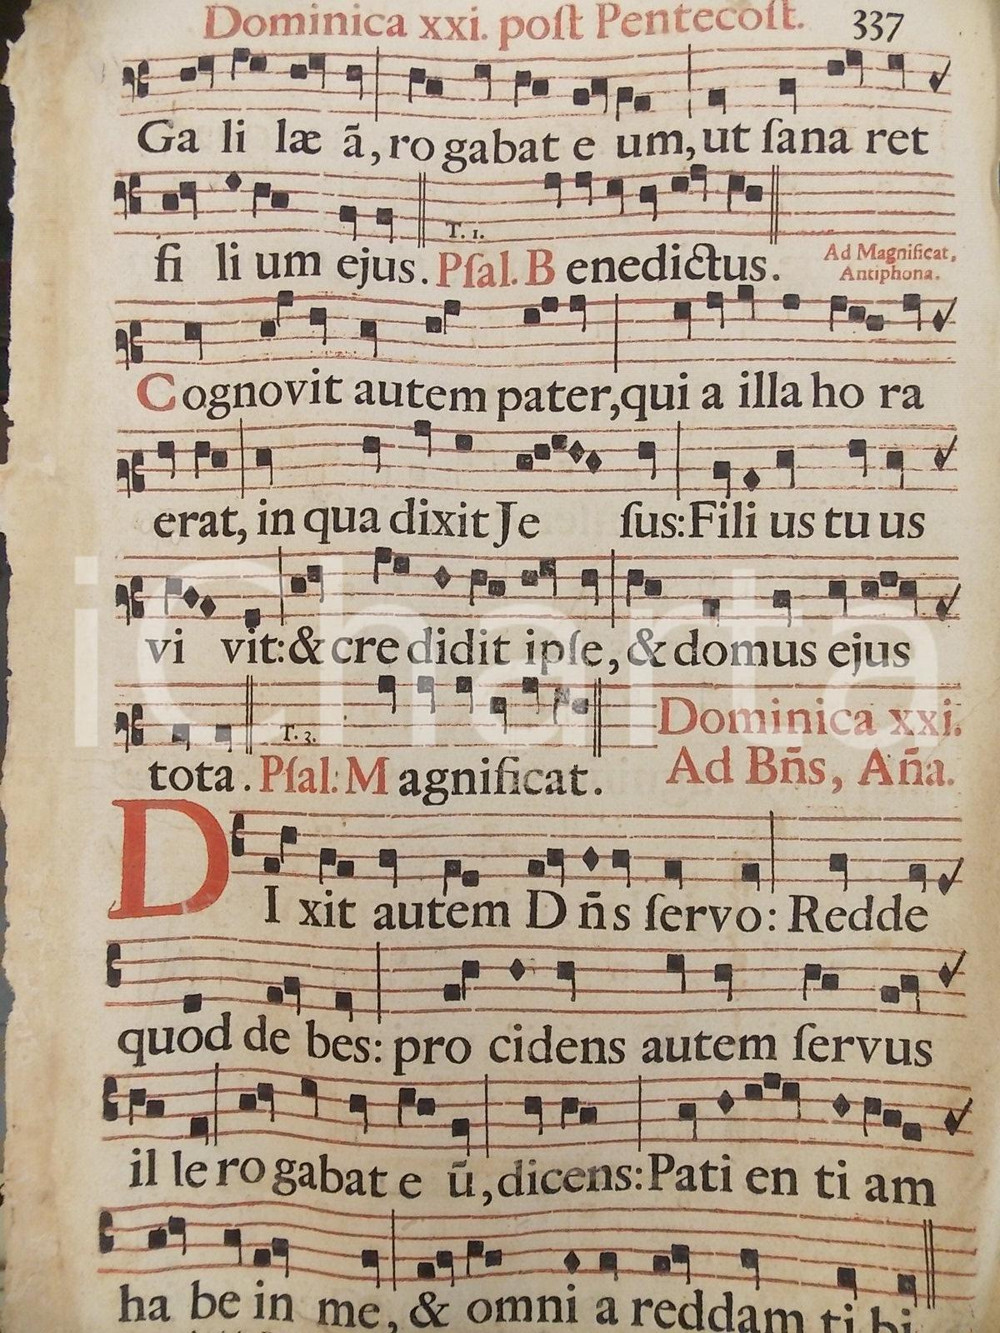 Dominica xxi. poſt Pentecoſt. 337
Ga li læ ã, ro gabat e um, ut ſana ret
T. 1.
fi li um ejus. Pſal. B enedictus. Ad Magnificat,
Antiphona.
Cognovit autem pater, qui a illa ho ra
erat, in qua dixit Je ſus: Fili us tu us
vi vit: & cre didit ipſe, & domus ejus
T. 3.
tota. Pſal: M agnificat. Dominica xxi.
Ad Bñs, Aña.
DI xit autem Dñs ſervo: Redde
quod de bes: pro cidens autem ſervus
il le ro gabat e ũ, dicens: Pati en ti am
ha be in me, & omni a reddam ti bi
iCharta